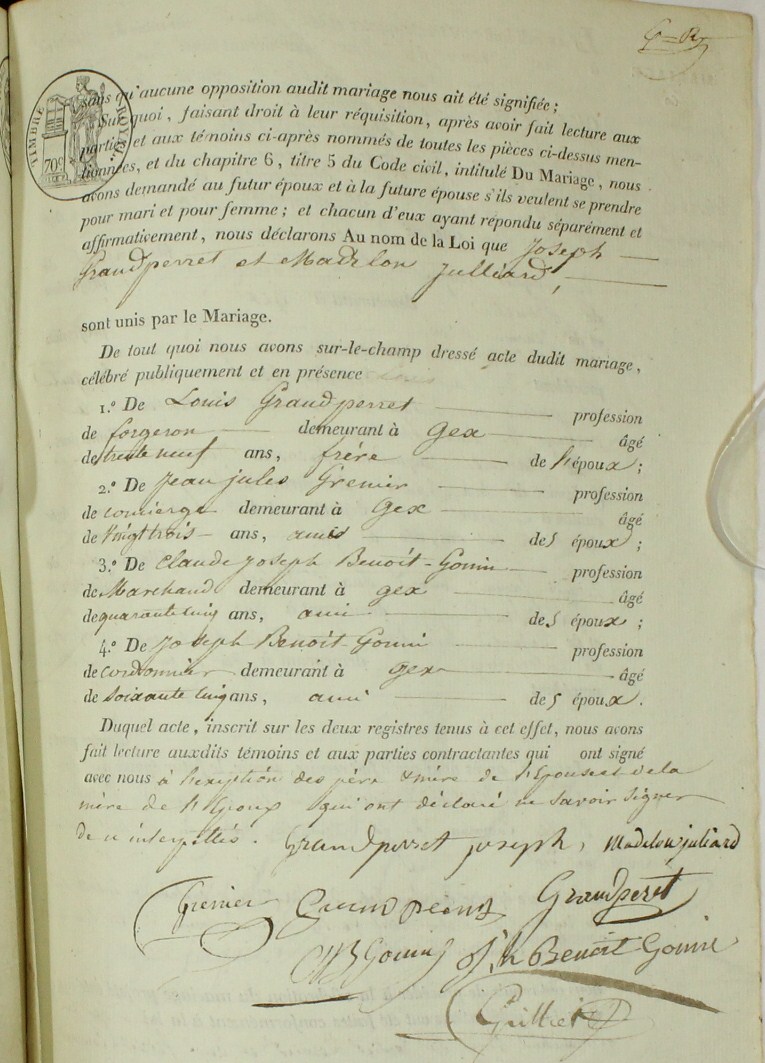 G=R
TIMBRE ROYAL
70c
sans qu'aucune opposition audit mariage nous ait été signifiée;
Sur quoi, faisant droit à leur réquisition, après avoir fait lecture aux
parties et aux témoins ci-après nommés de toutes les pièces ci-dessus men-
tionnées, et du chapitre 6, titre 5 du Code civil, intitulé Du Mariage, nous
avons demandé au futur époux et à la future épouse s'ils veulent se prendre
pour mari et pour femme; et chacun d'eux ayant répondu séparément et
affirmativement, nous déclarons Au nom de la Loi que Joseph
Grandperret et Madelon Julliard,
sont unis par le Mariage.
De tout quoi nous avons sur-le-champ dressé acte dudit mariage,
célébré publiquement et en présence
1.º De Louis Grandperret profession
de forgeron demeurant à Gex âgé
de trente neuf ans, frère de l'époux;
2.º De Jean jules Grenier profession
de concierge demeurant à Gex âgé
de vingt trois ans, amis des époux;
3.º De Claude Joseph Benoit-Gonin profession
de Marchand demeurant à gex âgé
de quarante cinq ans, ami des époux;
4.º De Joseph Benoit Gonin profession
de cordonnier demeurant à gex âgé
de soixante cinq ans, ami des époux.
Duquel acte, inscrit sur les deux registres tenus à cet effet, nous avons
fait lecture auxdits témoins et aux parties contractantes qui ont signé
avec nous à l'exception des père & mère de l'Epouse et de la
mère de l'Epoux qui ont déclaré ne savoir signer
de ce interpellés. Grandperret joseph, Madelon juliard
Grenier Grandperret
Benoit Gonin